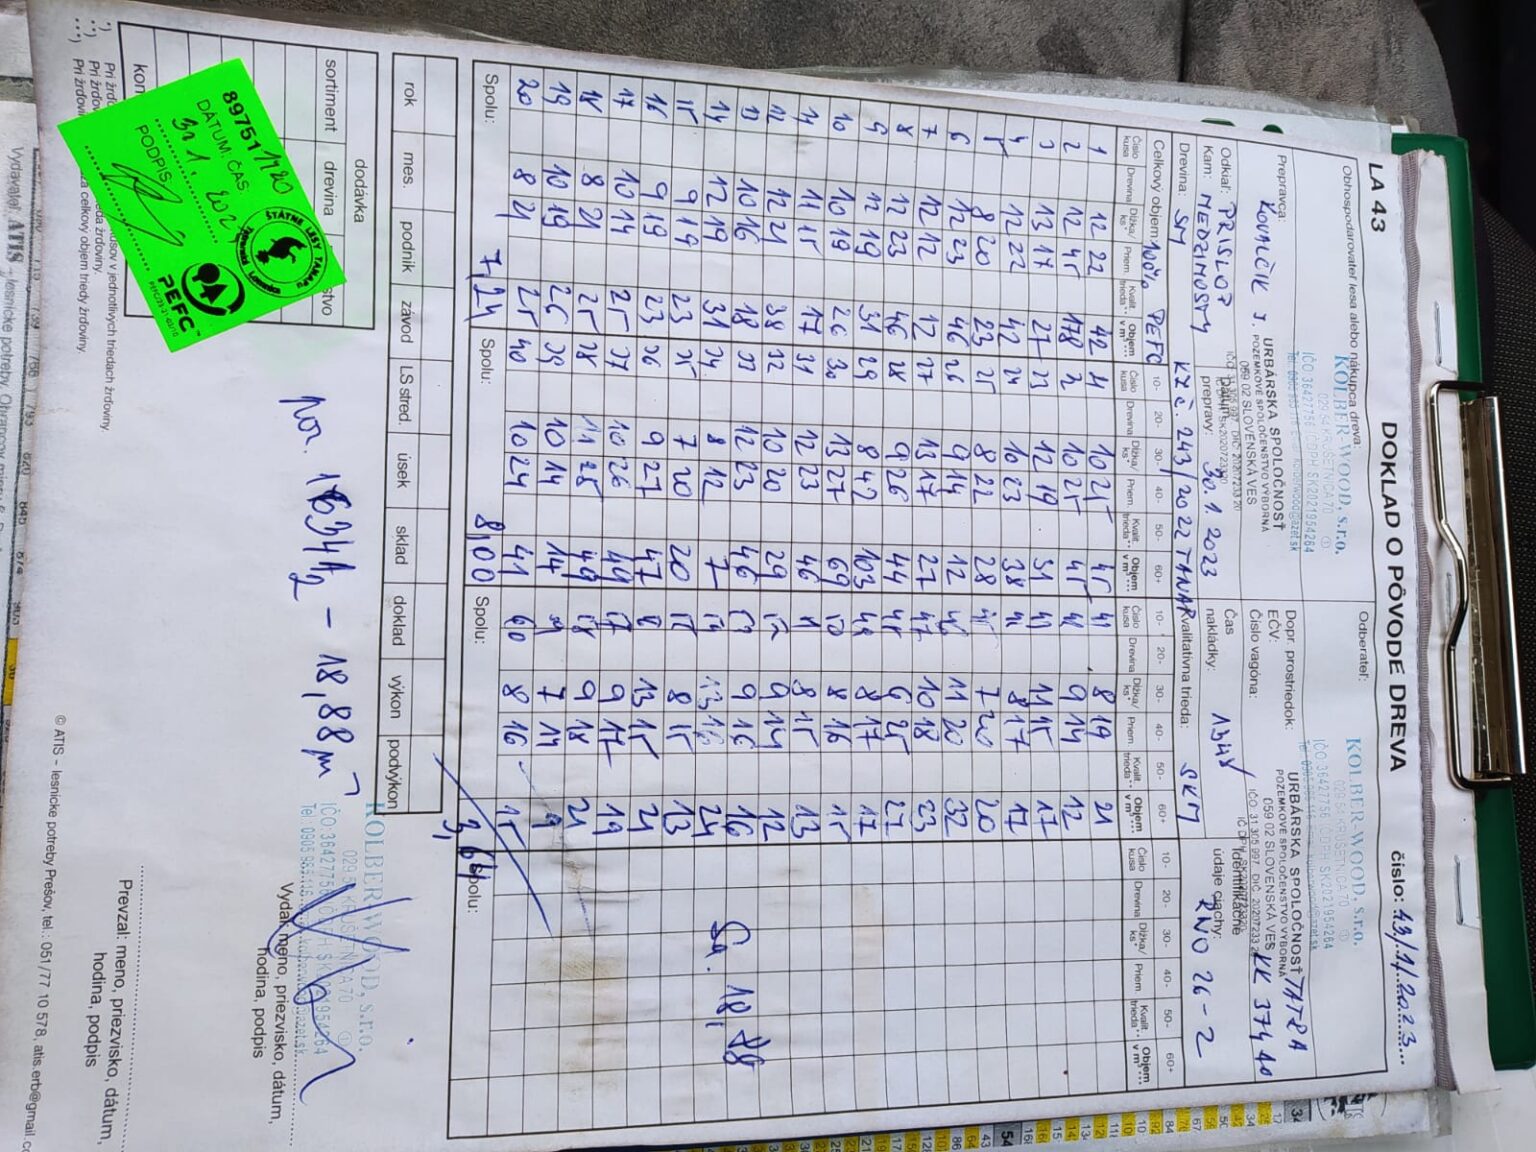 LA 43
DOKLAD O PÔVODE DREVA
číslo: 43/1/2023
Obhospodarovateľ lesa alebo nákupca dreva:
KOLBER-WOOD, s.r.o.
029 54 KRUŠETNICA 70
IČO 36427756 IČ DPH SK2021954264
Odberateľ:
KOLBER-WOOD, s.r.o.
029 54 KRUŠETNICA 70
IČO 36427756 IČ DPH SK2021954264
Prepravca: KOVALČIK J.
URBÁRSKA SPOLOČNOSŤ
POZEMKOVÉ SPOLOČENSTVO VÝBORNÁ
059 02 SLOVENSKÁ VES
Dopr. prostriedok: TATRA
URBÁRSKA SPOLOČNOSŤ
POZEMKOVÉ SPOLOČENSTVO VÝBORNÁ
059 02 SLOVENSKÁ VES
EČV: KK 374 AO
Číslo vagóna:
IČO 31 305 997, DIČ 2020723320
Odkiaľ: PRISLOP
Kam: MEDZIMOSTY
Dátum prepravy: 30.1.2023
Čas nakládky: 1345
Identifikačné údaje ciachy: RNO 26-2
Drevina: SM
KZ č. 243/2022 TANAP
Kvalitatívna trieda: SKM
Celkový objem 100% PEFC
10- 20- 30- 40- 50- 60+
10- 20- 30- 40- 50- 60+
10- 20- 30- 40- 50- 60+
Číslo kusa Drevina Dĺžka/ks* Priem. Kvalit. trieda** Objem v m³***
Číslo kusa Drevina Dĺžka/ks* Priem. Kvalit. trieda** Objem v m³***
Číslo kusa Drevina Dĺžka/ks* Priem. Kvalit. trieda** Objem v m³***
Číslo kusa Drevina Dĺžka/ks* Priem. Kvalit. trieda** Objem v m³***
1 12 22 42 21 10 25 45 41 8 19 21
2 12 45 178 22 10 25 45 42 9 14 12
3 13 17 27 23 12 19 31 43 11 15 17
4 12 22 42 24 10 23 38 44 8 17 17
5 8 20 23 25 8 22 28 45 7 20 20
6 12 23 46 26 9 14 12 46 11 20 32
7 12 12 12 27 13 17 27 47 10 18 23
8 12 23 46 28 9 26 44 48 6 25 27
9 12 19 31 29 8 42 103 49 8 17 17
10 10 19 26 30 13 27 69 50 8 16 15
11 11 15 17 31 12 23 46 51 8 15 13
12 12 21 38 32 10 20 29 52 9 14 12
13 10 16 18 33 12 23 46 53 9 16 16
14 12 19 31 34 8 12 7 54 13 16 24
15 9 19 23 35 7 20 20 55 8 15 13
16 9 19 23 36 9 27 47 56 13 15 21
17 10 14 25 37 10 26 49 57 9 17 19
18 8 21 25 38 11 25 49 58 9 18 21
19 10 19 26 39 10 14 14 59 7 14 9
20 8 21 25 40 10 24 41 60 8 16 15
Spolu: 7,24 Spolu: 8,00 Spolu: 3,64 Spolu:
Sa. 18,88
rok mes. podnik závod LS stred. úsek sklad doklad výkon podvýkon
dodávka
sortiment drevina
897511420
DÁTUM, ČAS
31.1.2023
PODPIS
ŠTÁTNE LESY TANAPU
PEFC™
- 18,88 m³
KOLBER-WOOD, s.r.o.
029 54 KRUŠETNICA 70
IČO 36427756 IČ DPH SK2021954264
Vydal: meno, priezvisko, dátum,
hodina, podpis
Prevzal: meno, priezvisko, dátum,
hodina, podpis
*)
**) Pri žrďo
***) Pri žrďo
kusov v jednotlivých triedach žrďoviny.
za celkový objem triedy žrďoviny.
© ATIS – lesnícke potreby Prešov, tel.: 051/77 10 578, atis.erb@gmail.c